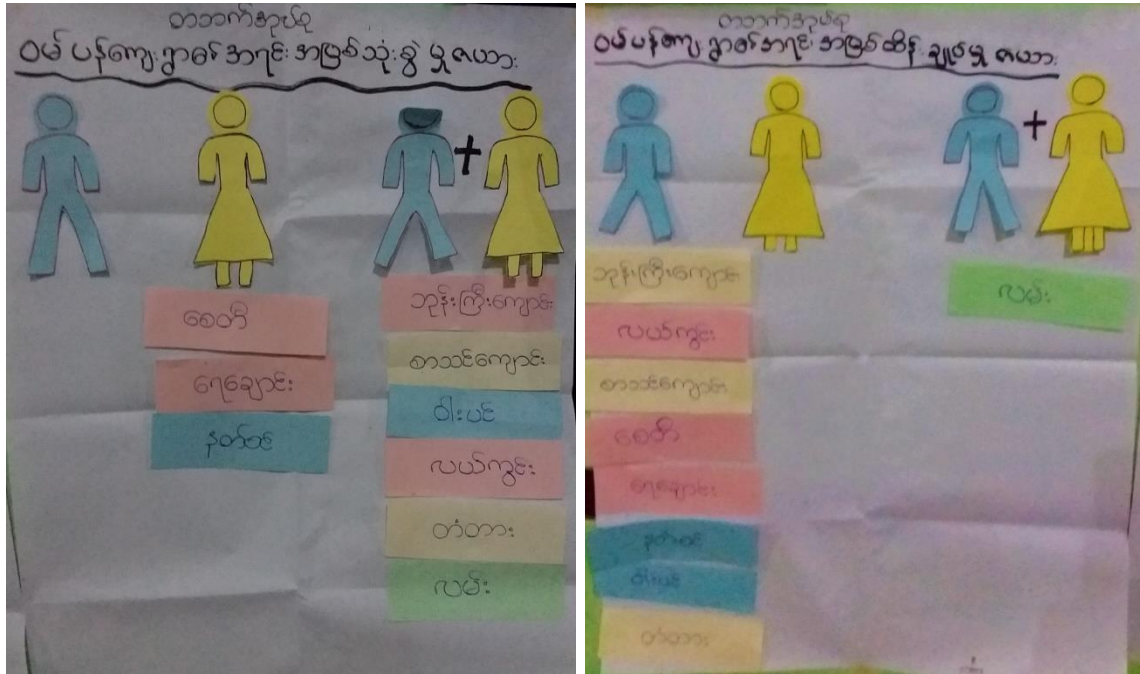 တဘက်အုပ်စု
ဝမ်ပန်ကျေးရွာ၏ အရင်းအမြစ်သုံးစွဲမှု ဇယား
+
စေတီ
ရေချောင်း
နတ်စင်
ဘုန်းကြီးကျောင်း
စာသင်ကျောင်း
ဝါးပင်
လယ်ကွင်း
တံတား
လမ်း
တဘက်အုပ်စု
ဝမ်ပန်ကျေးရွာ၏ အရင်းအမြစ်ထိန်းချုပ်မှု ဇယား
+
ဘုန်းကြီးကျောင်း
လယ်ကွင်း
စာသင်ကျောင်း
စေတီ
ရေချောင်း
နတ်စင်
ဝါးပင်
တံတား
လမ်း